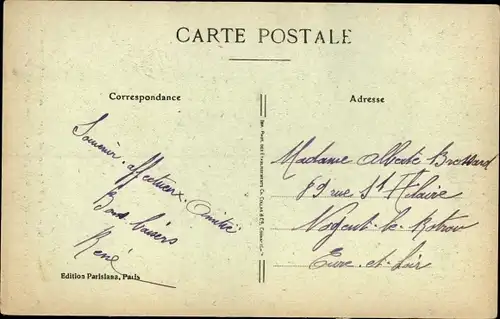 CARTE POSTALE
Correspondance
Souvenir affectueux. Amitié
Bons baisers
René
Edition Parisiana, Paris
Adresse
Madame Alberte Brossard
89 rue St Hilaire
Nogent-le-Rotrou
Eure-et-Loir